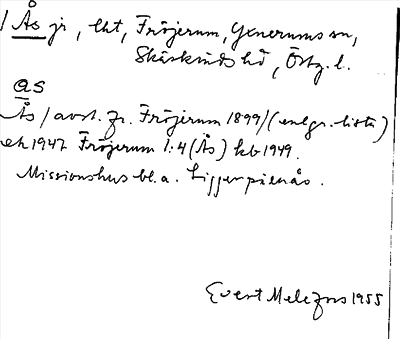 / Ås jr, lht, Fröjerum, Yxnerums sn,
Skärkinds hd, Östg. l.
ås
Ås / avst. fr. Fröjerum 1899/(enl gr. lista)
ek 1947 Fröjerum 1:4 (Ås) kb 1949.
Missionshus bl. a. Ligger på en ås.
Evert Melefors 1955